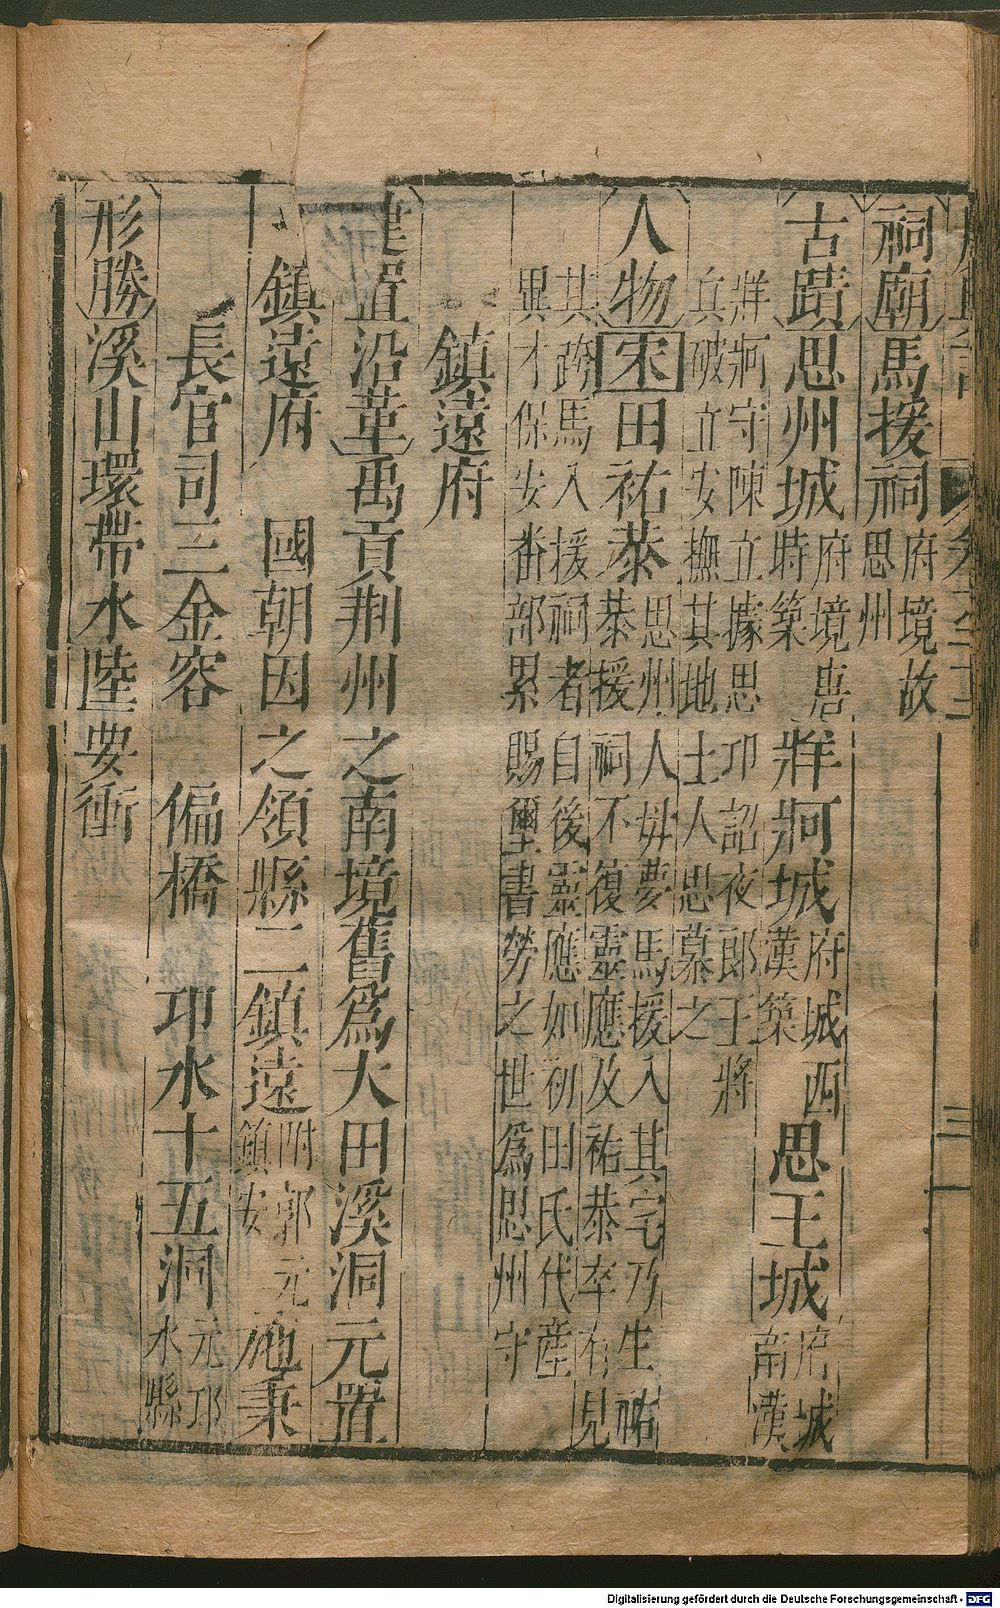 祠廟馬援祠府境故思州
古蹟思州城府境唐時築牂牁城府城西漢築思王城府城南漢
牂牁守陳立據思卭詔夜郎王將
兵破立安撫其地士人思慕之
人物宋田祐恭思州人毋夢馬援入其宅乃生祐恭援祠不復靈應及祐恭卒有見
其跨馬入援祠者自後靈應如初田氏代産
異才保安番部累賜璽書勞之世為思州守
鎮遠府
建置沿革禹貢荆州之南境舊爲大田溪洞元置
鎮遠府 國朝因之領縣二鎮遠附郭元鎮安施秉
長官司三金容 偏橋 卭水十五洞元卭水縣
形勝溪山環帶水陸要衝
Digitalisierung gefördert durch die Deutsche Forschungsgemeinschaft - DFG